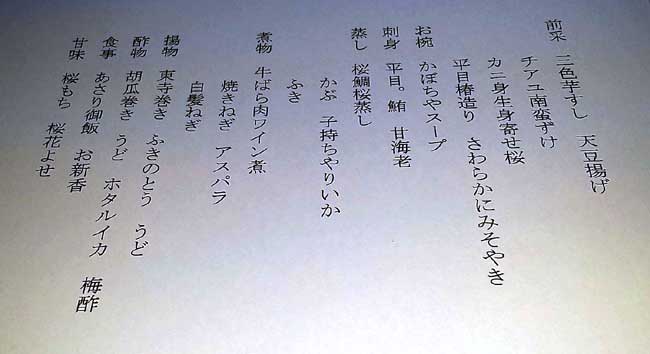 前采　三色芋すし　天豆揚げ
チアユ南蛮ずけ
カニ身生身寄せ桜
平目椿造り　さわらかにみそやき
お椀　かぼちやスープ
刺身　平目。鮪　甘海老
蒸し　桜鯛桜蒸し
かぶ　子持ちやりいか
ふき
煮物　牛ばら肉ワイン煮
焼きねぎ　アスパラ
白髪ねぎ
揚物　東寺巻き　ふきのとう　うど
酢物　胡瓜巻き　うど　ホタルイカ　梅酢
食事　あさり御飯　お新香
甘味　桜もち　桜花よせ